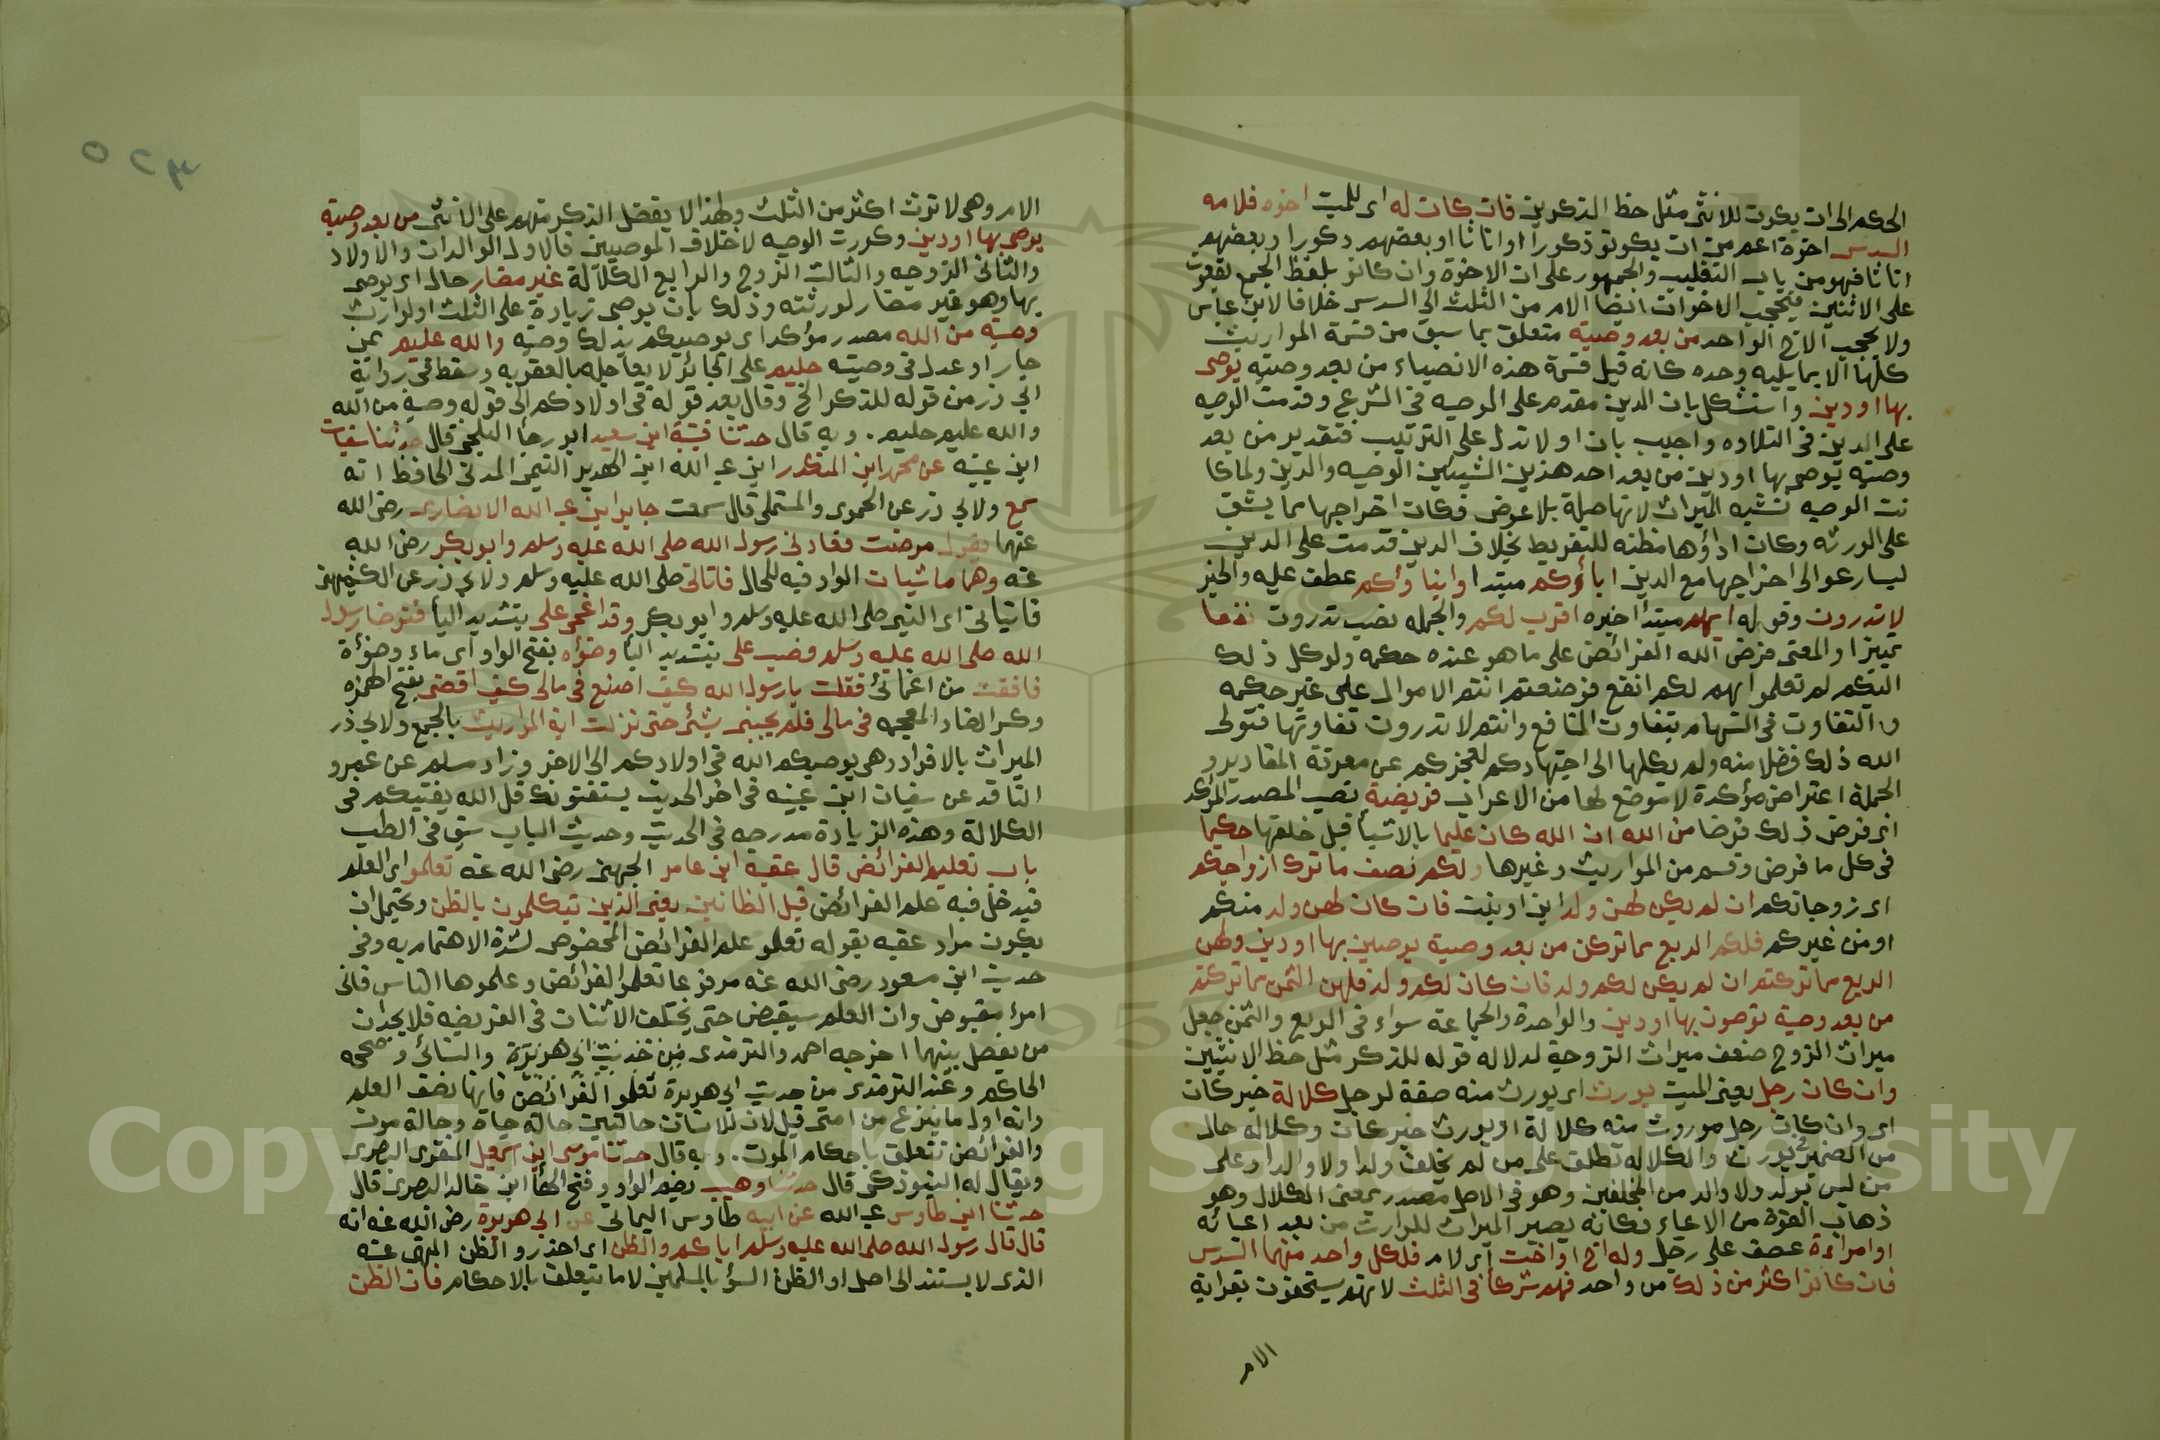 الحكم الى ان يكون للانثى مثل حظ الذكرين فان كان له اى للميت اخوه فلامه
السدس اخوة اعم من ان يكونو ذكورا او اناثا او بعضهم ذكورا وبعضهم
اناثا فهو من باب التغليب والجمهور على ان الاخوة وان كانو بلفظ الجمع يقعون
على الاثنين فيحجب الاخوات ايضا الام من الثلث الى السدس خلافا لابن عباس
ولا يحجب الاخ الواحد من بعد وصية متعلق بما سبق من قسمة المواريث
كلها الا بما يليه وحده كانه قيل قسمة هذه الانصباء من بعد وصية يوصى
بها او دين واستشكل بان الدين مقدم على الوصيه فى الشرع وقدمت الوصيه
على الدين فى التلاوه واجيب بان او لا تدل على الترتيب فتقدير من بعد
وصية يوصى بها او دين من بعد احد هذين الشيئين الوصيه والدين ولما كا
نت الوصيه تشبه الميراث لانها صلة بلا عوض فكان اخراجها مما يشق
على الورثه وكان اداؤها مظنه للتفريط بخلاف الدين قدمت على الدين
ليسارعو الى اخراجها مع الدين اباؤكم مبتدا وابناؤكم عطف عليه والخبر
لا تدرون وقوله ايهم مبتدأ خبره اقرب لكم والجمله نصب تدرون نفعا
تمييز والمعنى فرض الله الفرائض على ما هو عنده حكمه ولو كل ذلك
اليكم لم تعلموا ايهم لكم انفع فوضعتم انتم الاموال على غير حكمه
والتفاوت فى السهام بتفاوت المنافع وانتم لا تدرون تفاوتها فتولى
الله ذلك فضلا منه ولم يكلها الى اجتهادكم لعجزكم عن معرفة المقادير و
الجملة اعتراض مؤكدة لا موضع لها من الاعراب فريضة نصب المصدر المؤكد
اى فرض ذلك فرضا من الله ان الله كان عليما بالاشيأ قبل خلقها حكيما
فى كل ما فرض وقسم من المواريث وغيرها ولكم نصف ما ترك ازواجكم
اى زوجاتكم ان لم يكن لهن ولد ابن او بنت فان كان لهن ولد منكم
او من غيركم فلكم الربع مما تركن من بعد وصية يوصين بها او دين ولهن
الربع مما تركتم ان لم يكن لكم ولد فان كان لكم ولد فلهن الثمن مما تركتم
من بعد وصية توصون بها او دين والواحدة والجماعة سواء فى الربع والثمن جعل
ميراث الزوج ضعف ميراث الزوجة لدلاله قوله للذكر مثل حظ الانثيين
وان كان رجل يعنى الميت يورث اى يورث منه صفة لرجل كلالة خبر كان
اى وان كان رجل موروث منه كلالة او يورث خبر كان وكلاله حال
من الضمير فى يورث والكلاله تطلق على من لم يخلف ولدا ولا والدا وعلى
من ليس بولد ولا والد من المخلفين وهو فى الاصل مصدر بمعنى الكلال وهو
ذهاب القوة من الاعياء فكانه يصير الميراث للوارث من بعد اعيائه
او امراءة عطف على رجل وله اخ او اخت اى لام فلكل واحد منهما السدس
فان كانوا اكثر من ذلك من واحد فهم شركأ فى الثلث لانهم يستحقون بقرابة
الام
الام وهى لا ترث اكثر من الثلث ولهذا لا يفضل الذكر منهم على الانثى من بعد وصية
يوصى بها او دين وكررت الوصيه لاختلاف الموصيين فالاول الوالدان والاولاد
والثانى الزوجه والثالث الزوج والرابع الكلالة غير مضار حال اى يوصى
بها وهو غير مضار لورثته وذلك بان يوصى زيادة على الثلث او لوارث
وصية من الله مصدر مؤكد اى يوصيكم بذلك وصيه والله عليم بمن
جار او عدل فى وصيته حليم على الجائر لا يعاجله بالعقوبه وسقط فى رواية
ابى ذر من قوله للذكر الخ وقال بعد قوله فى اولادكم الى قوله وصية من الله
والله عليم حليم . وبه قال حدثنا قتيبة ابن سعيد ابو رجأ البلخى قال حدثنا سفيان
ابن عيينه عن محمد ابن المنكدر ابن عبد الله ابن الهدير التيمى المدنى الحافظ انه
سمع ولابى ذر عن الحموى والمستملى قال سمعت جابر ابن عبد الله الانصارى رضى الله
عنهما يقول مرضت فعادنى رسول الله صلى الله عليه وسلم وابو بكر رضى الله
عنه وهما ماشيان الواو فيه للحال فاتانى صلى الله عليه وسلم ولابى ذر عن الكشميهنى
فاتيانى اى النبى صلى الله عليه وسلم وابو بكر وقد اغمى على بتشديد اليأ فتوضا رسول
الله صلى الله عليه وسلم فصب على بتشديد اليأ وضؤه بفتح الواو اى ماء وضؤة
فافقت من اغمائى فقلت يا رسول الله كيف اصنع فى مالى كيف اقضى بفتح الهمزه
وكسر الضاد المعجمه فى مالى فلم يجبنى بشئ حتى نزلت اية المواريث بالجمع ولابى ذر
الميراث بالافراد وهى يوصيكم الله فى اولادكم الى الاخر وزاد مسلم عن عمرو
الناقد عن سفيان ابن عيينه فى اخر الحديث يستفتونك قل الله يفتيكم فى
الكلالة وهذه الزيادة مدرجه فى الحديث وحديث الباب سبق فى الطب
باب تعليم الفرائض قال عقبة ابن عامر الجهنى رضى الله عنه تعلموا اى العلم
فيدخل فيه علم الفرائض قبل الظانين يعنى الذين يتكلمون بالظن ويحتمل ان
يكون مراد عقبه بقوله تعلمو علم الفرائض المخصوص لشدة الاهتمام به وفى
حديث ابن مسعود رضى الله عنه مرفوعا تعلمو الفرائض وعلموها الناس فانى
امرأ مقبوض وان العلم سيقبض حتى يختلف الاثنان فى الفريضه فلا يجدان
من يفصل بينهما اخرجه احمد والترمذى من حديث ابى هريرة والنسائى وصححه
الحاكم وعند الترمذى من حديث ابى هريرة تعلمو الفرائض فانها نصف العلم
وانه اول ما ينزع من امتى قيل لان للانسان حالتين حالة حياة وحالة موت
والفرائض تتعلق باحكام الموت . وبه قال حدثنا موسى ابن اسمعيل المنقرى البصرى
ويقال له التبوذكى قال حدثنا وهيب بضم الواو وفتح الهأ ابن خالد البصرى قال
حدثنا ابن طاوس عبد الله عن ابيه طاوس اليمانى عن ابى هريرة رضى الله عنه انه
قال قال رسول الله صلى الله عليه وسلم اياكم والظن اى احذرو الظن المنهى عنه
الذى لا يستند الى اصل او الظن السؤ بالمسلمين لا ما يتعلق بالاحكام فان الظن
Copyright © King Saud University